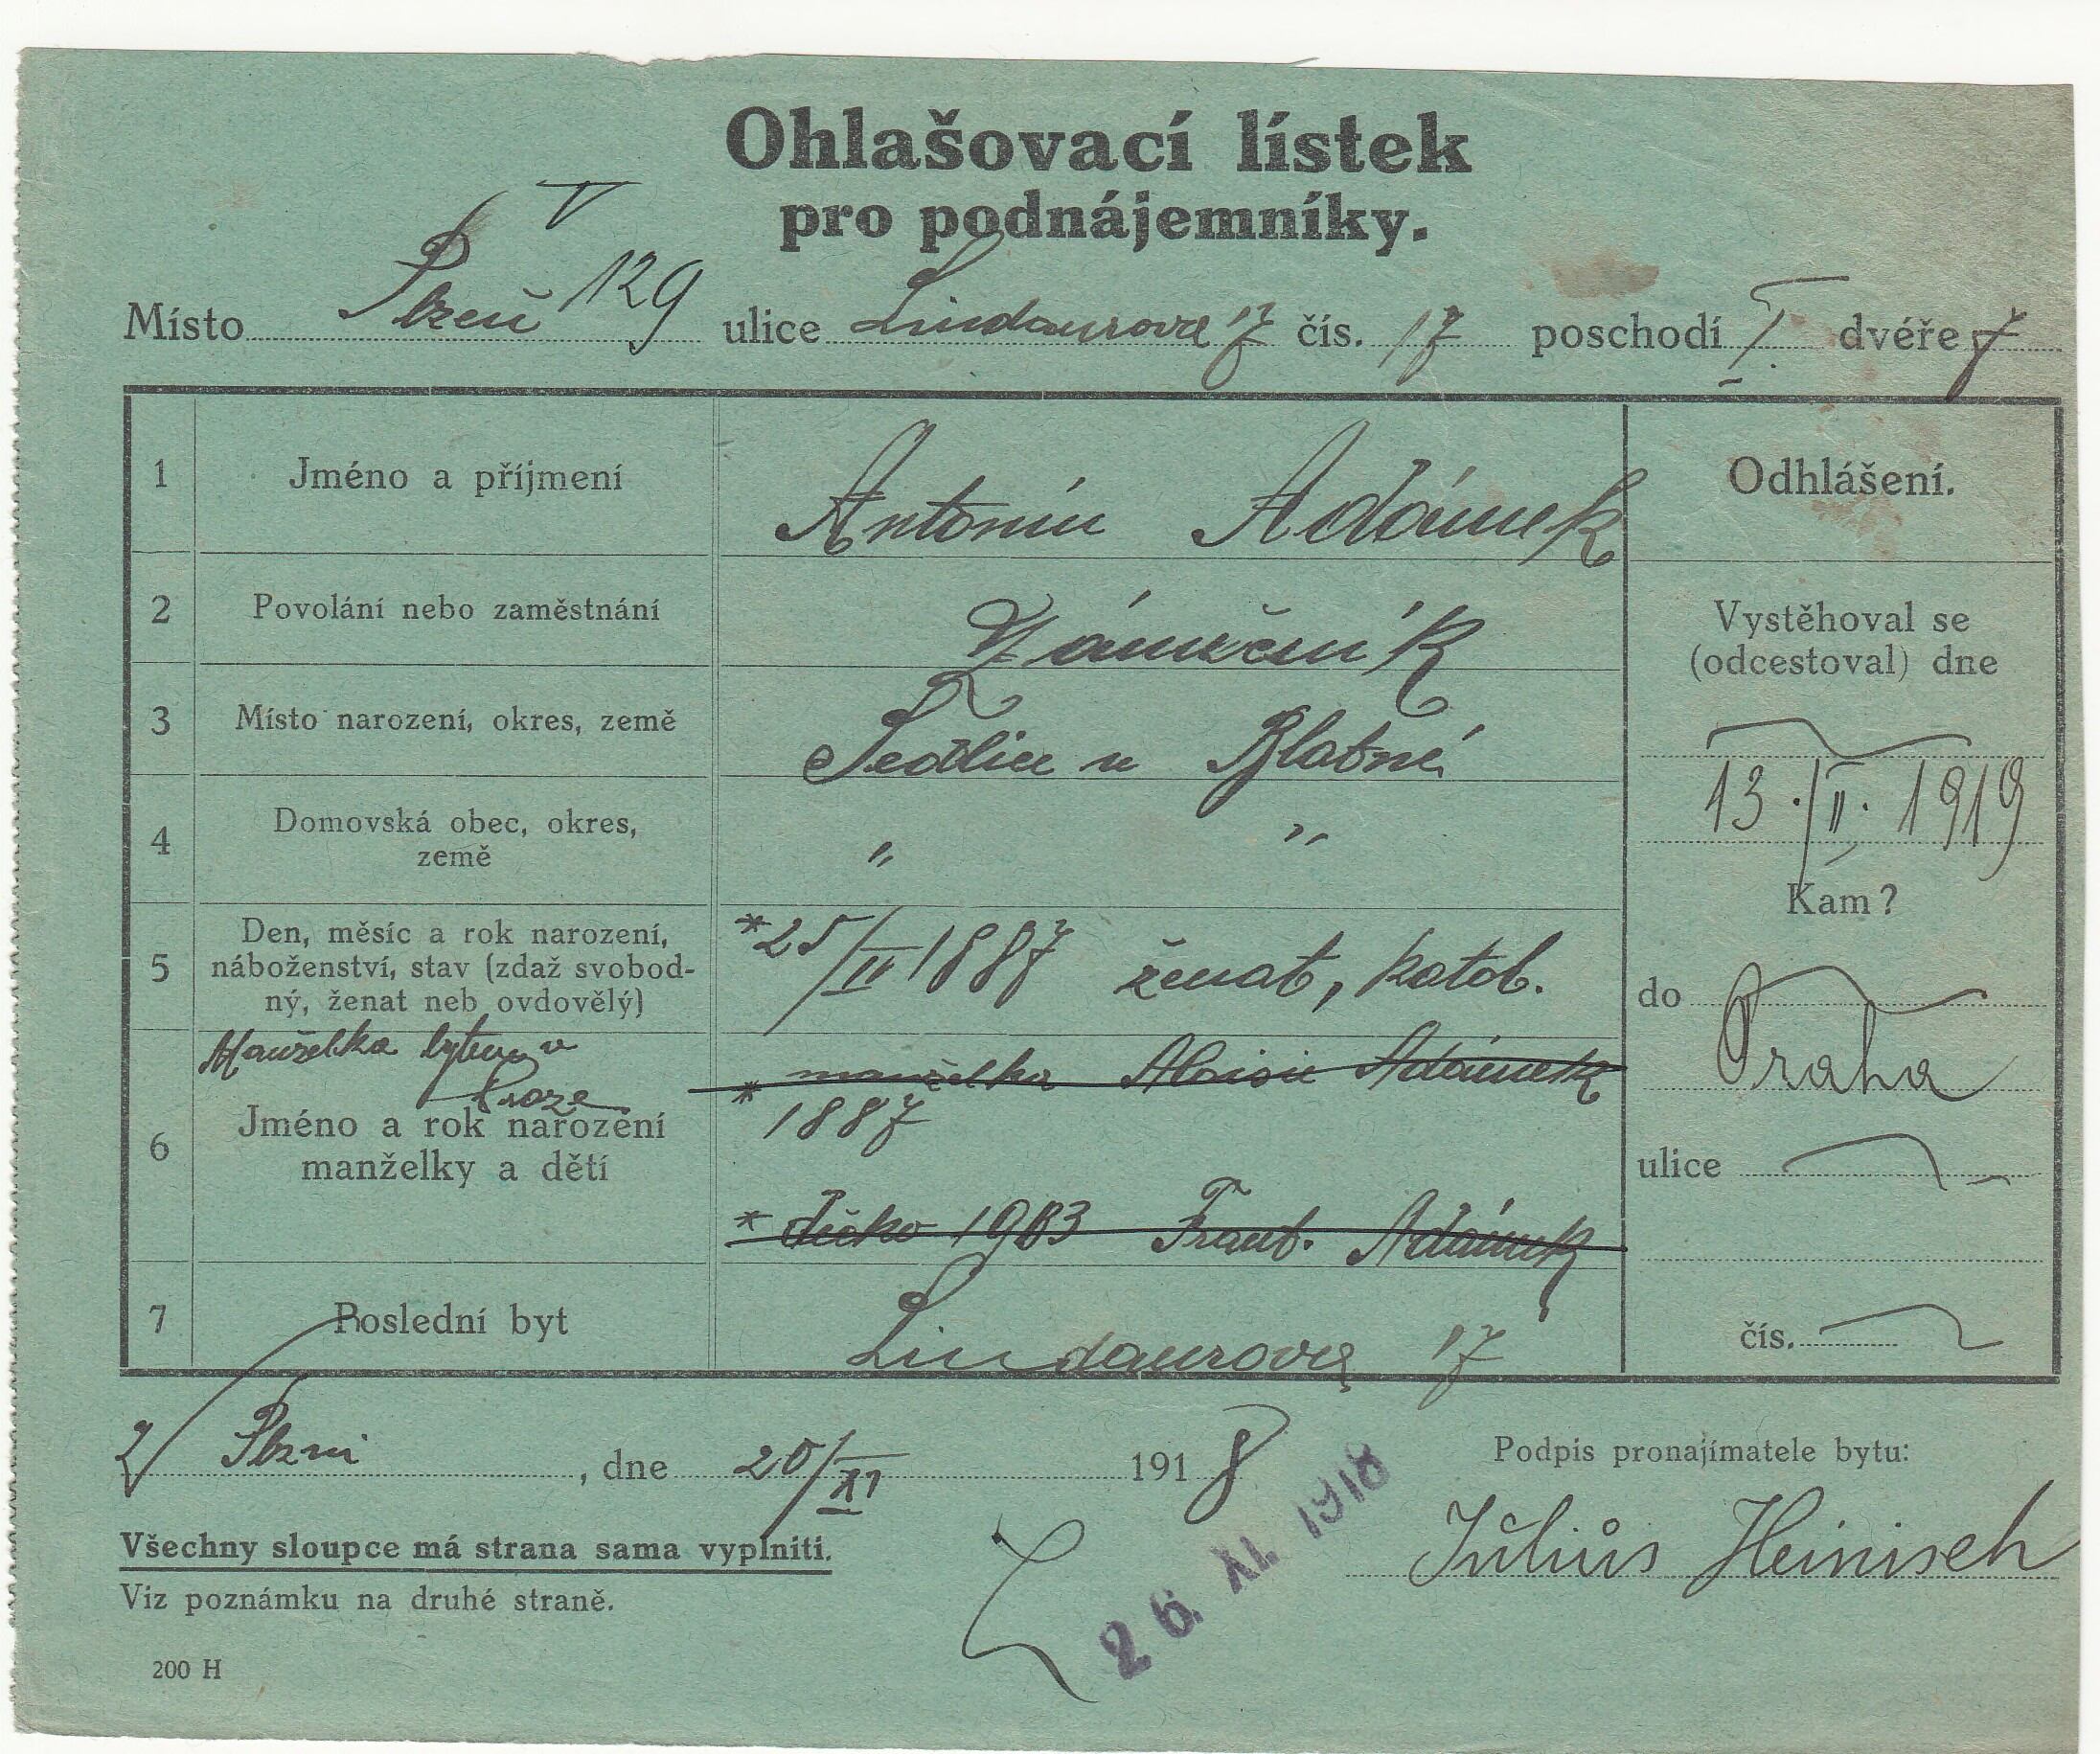 Ohlašovací lístek
pro podnájemníky.
V
Místo Plzeň 129 ulice Lindaurova 17 čís. 17 poschodí I. dvéře 7
1 Jméno a příjmení Antonín Adámek
2 Povolání nebo zaměstnání Zámečník
3 Místo narození, okres, země Sedlice u Blatné
4 Domovská obec, okres, země " "
5 Den, měsíc a rok narození, náboženství, stav (zdaž svobodný, ženat neb ovdovělý) *25/II 1887 ženat, katol.
Manželka bytem v Praze
6 Jméno a rok narození manželky a dětí
* manželka Aloisie Adámek
1887
* Frant. Adámek
7 Poslední byt Lindaurova 17
Odhlášení.
Vystěhoval se
(odcestoval) dne
13./II. 1919
Kam?
do Praha
ulice
čís.
V Plzni, dne 20/XI 1918
26. XI. 1918
Podpis pronajímatele bytu:
Július Heinisch
Všechny sloupce má strana sama vyplniti.
Viz poznámku na druhé straně.
200 H